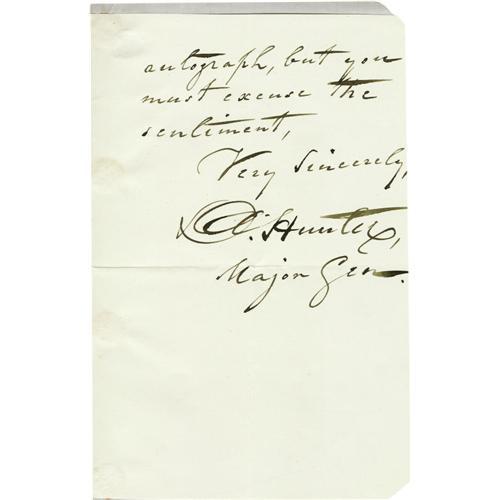 autograph, but you
must excuse the
sentiment,
Very Sincerely,
D. Hunter,
Major Gen.